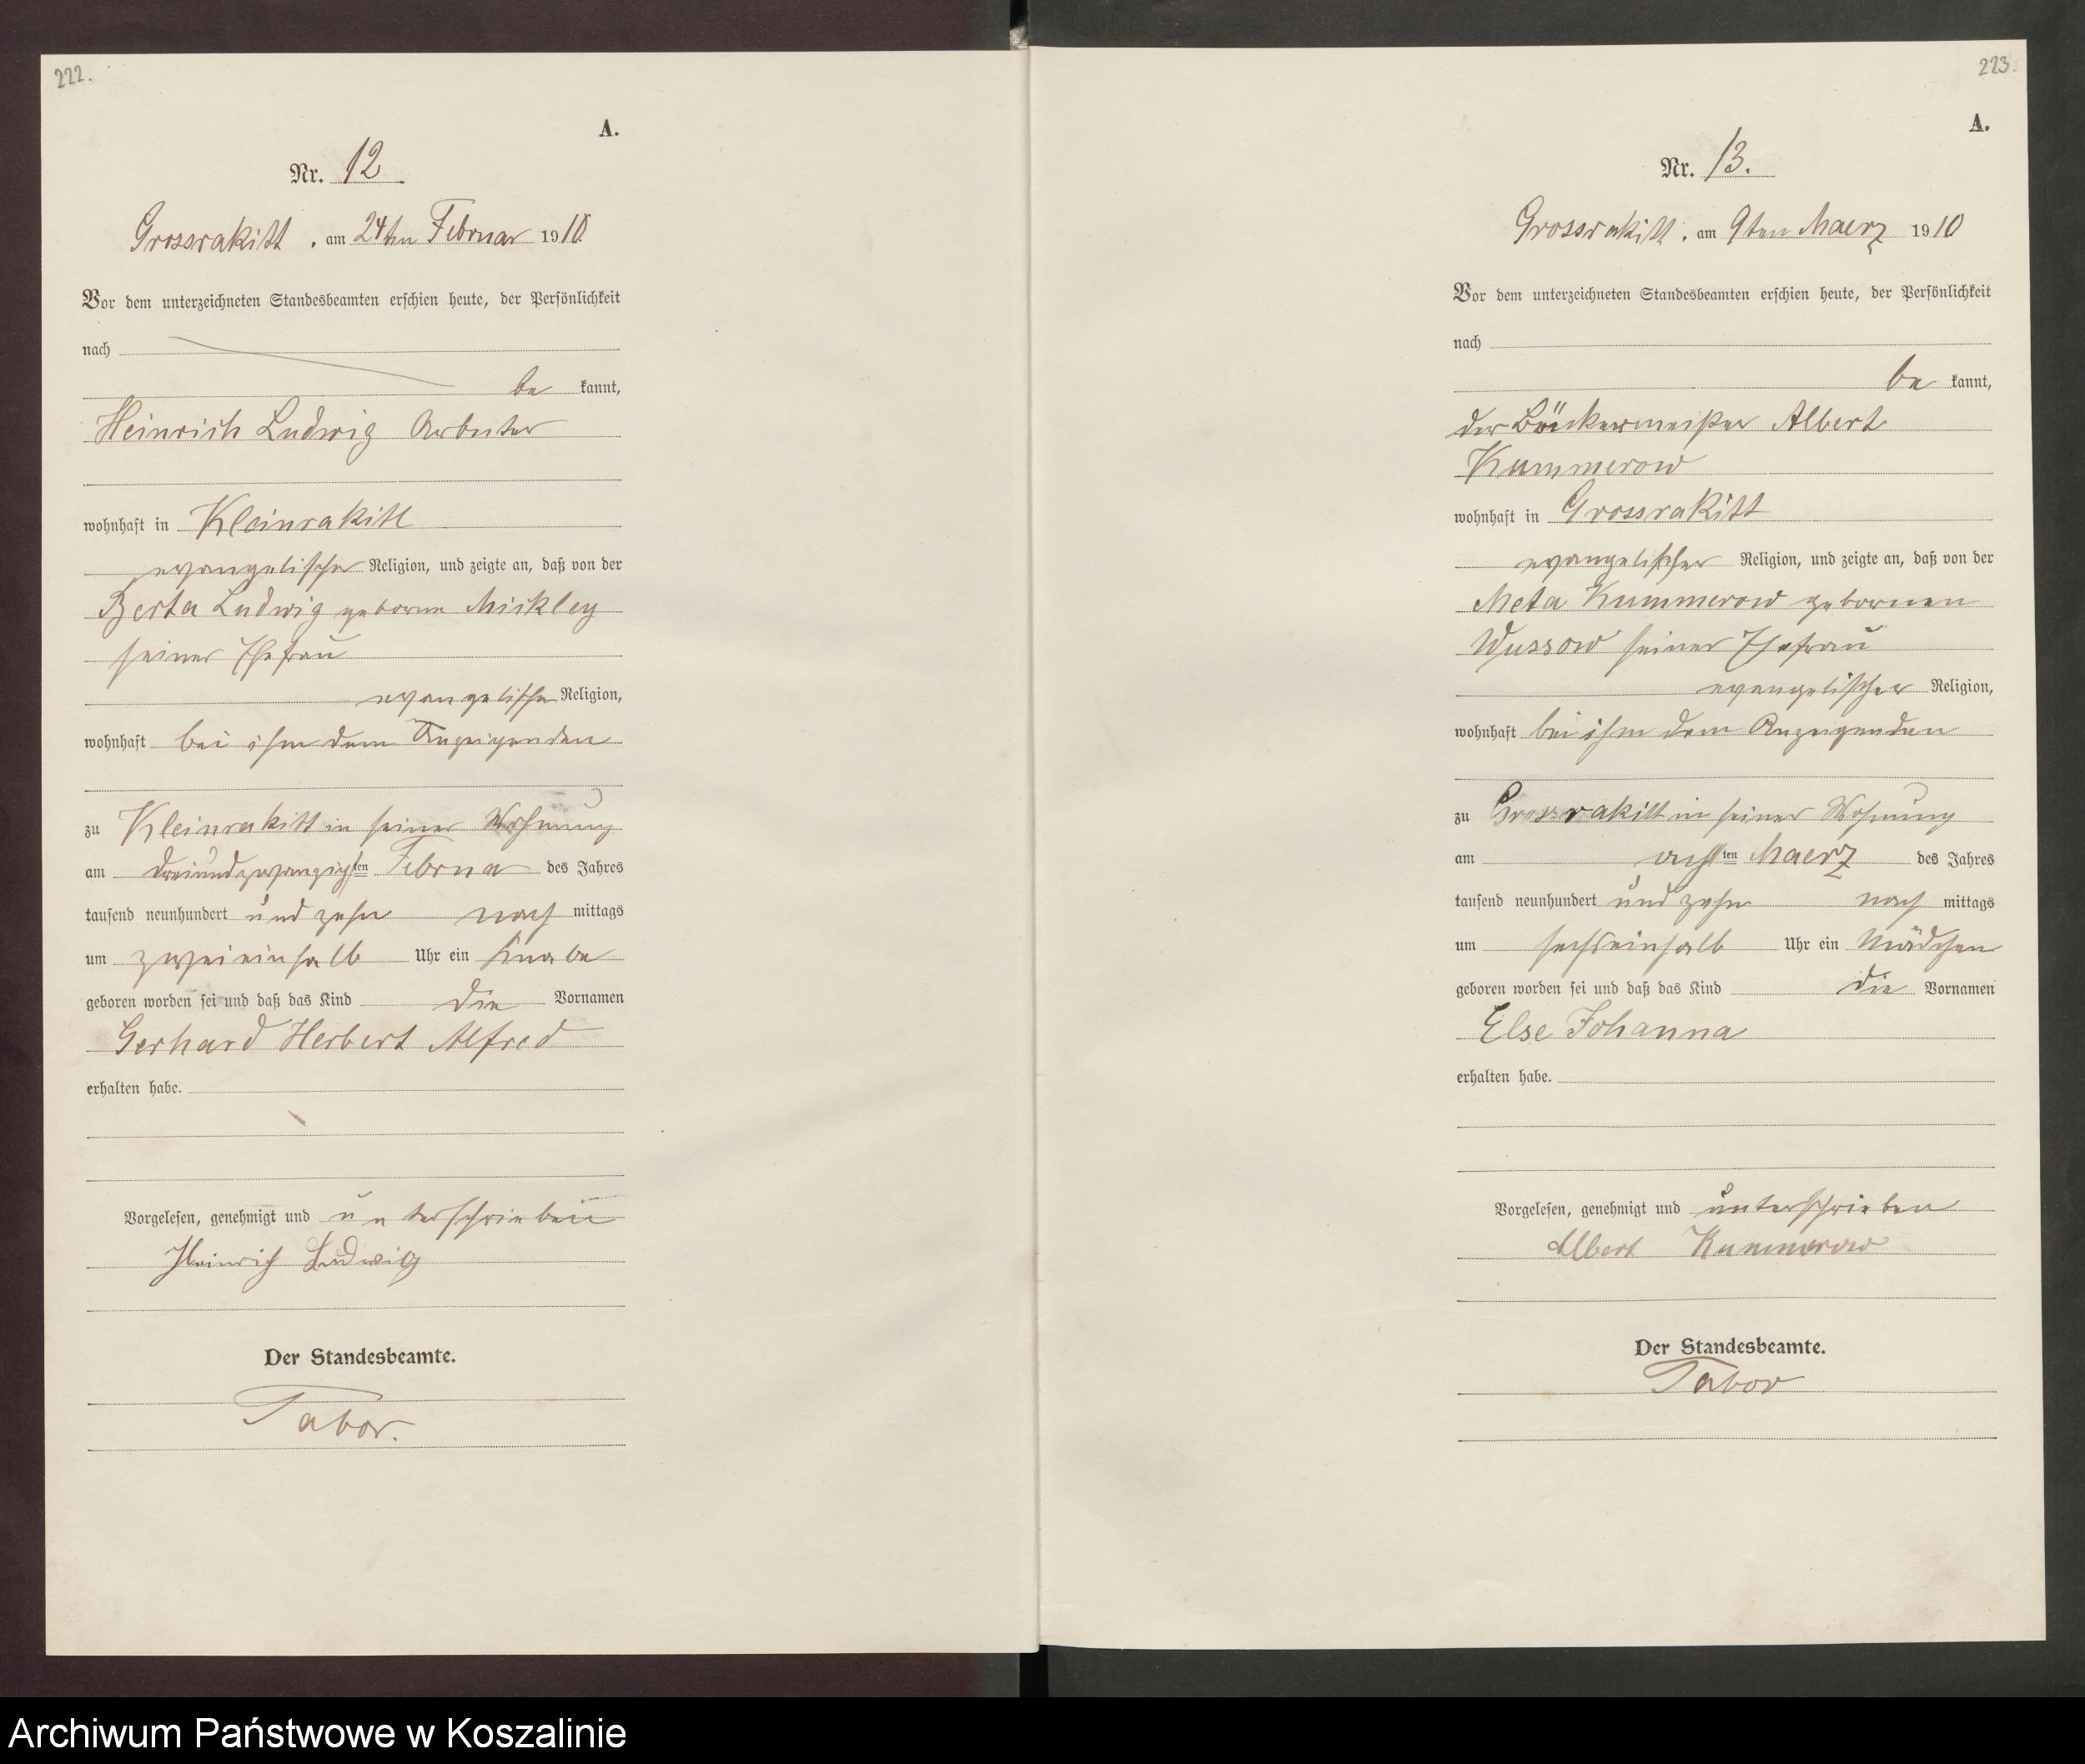 222.
A.
Nr. 12
Grossrakitt, am 24ten Februar 1910.
Vor dem unterzeichneten Standesbeamten erschien heute, der Persönlichkeit
nach
be kannt,
Heinrich Ludwig Arbeiter
wohnhaft in Kleinrakitt
evangelischer Religion, und zeigte an, daß von der
Berta Ludwig geborne Mickley
seiner Ehefrau
evangelischer Religion,
wohnhaft bei ihm dem Anzeigenden
zu Kleinrakitt in seiner Wohnung
am dreiundzwanzigsten Februa des Jahres
tausend neunhundert und zehn nach mittags
um zweieinhalb Uhr ein Knabe
geboren worden sei und daß das Kind die Vornamen
Gerhard Herbert Alfred
erhalten habe.
Vorgelesen, genehmigt und unterschrieben
Heinrich Ludwig
Der Standesbeamte.
Tabor.
223.
A.
Nr. 13.
Grossrakitt, am 9ten Maerz 1910
Vor dem unterzeichneten Standesbeamten erschien heute, der Persönlichkeit
nach
be kannt,
der Bäckermeister Albert
Kummerow
wohnhaft in Grossrakitt
evangelischer Religion, und zeigte an, daß von der
Meta Kummerow gebornen
Wussow seiner Ehefrau
evangelischer Religion,
wohnhaft bei ihm dem Anzeigenden
zu Grossrakitt in seiner Wohnung
am achten Maerz des Jahres
tausend neunhundert und zehn nach mittags
um sechseinhalb Uhr ein Mädchen
geboren worden sei und daß das Kind die Vornamen
Else Johanna
erhalten habe.
Vorgelesen, genehmigt und unterschrieben
Albert Kummerow
Der Standesbeamte.
Tabor
Archiwum Państwowe w Koszalinie